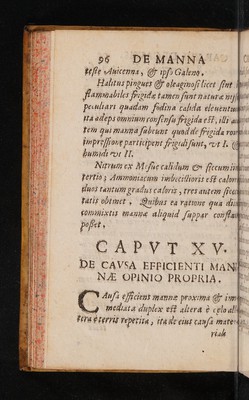 96 DE MANNA
teste Auicenna, & ipso Galeno.
Halitus pingues & oleaginosi licet sint
flammabiles frigidæ tamen sunt naturæ nisi
peculiari quadam fodina calida eleuentur
ita adeps omnium consensu frigida est, illi au
tem qui manna subeunt quod de frigida rore
impressione participent frigidi sunt, vt I. &
humidi vt II.
Nitrum ex Mesue calidum & siccum in
tertio; Ammoniacum imbecillioris est calor
duos tantum gradus caloris, tres autem sicci
tatis obtinet. Quibus ea ratione qua di
commixtis mannæ aliquid suppar constitu
posset.
CAPVT XV.
DE CAVSA EFFICIENTI MAN
NÆ OPINIO PROPRIA.
CAusa efficiens mannæ proxima & im
mediata duplex est altera è cælo al
tera è terris repetita, ita de eius causa mate
riale